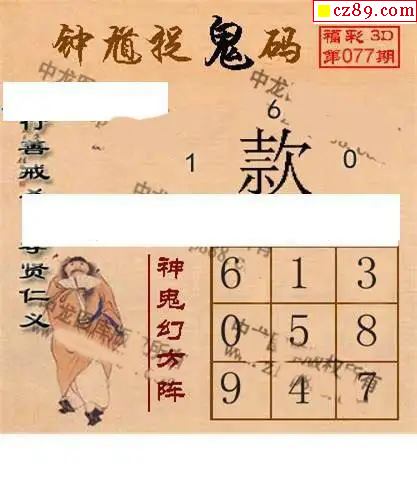 cz89.com
钟馗捉鬼码
福彩 3D
第077期
6
1 款 0
行善戒
尊贤仁义
神鬼幻方阵
6 1 3
0 5 8
9 4 7